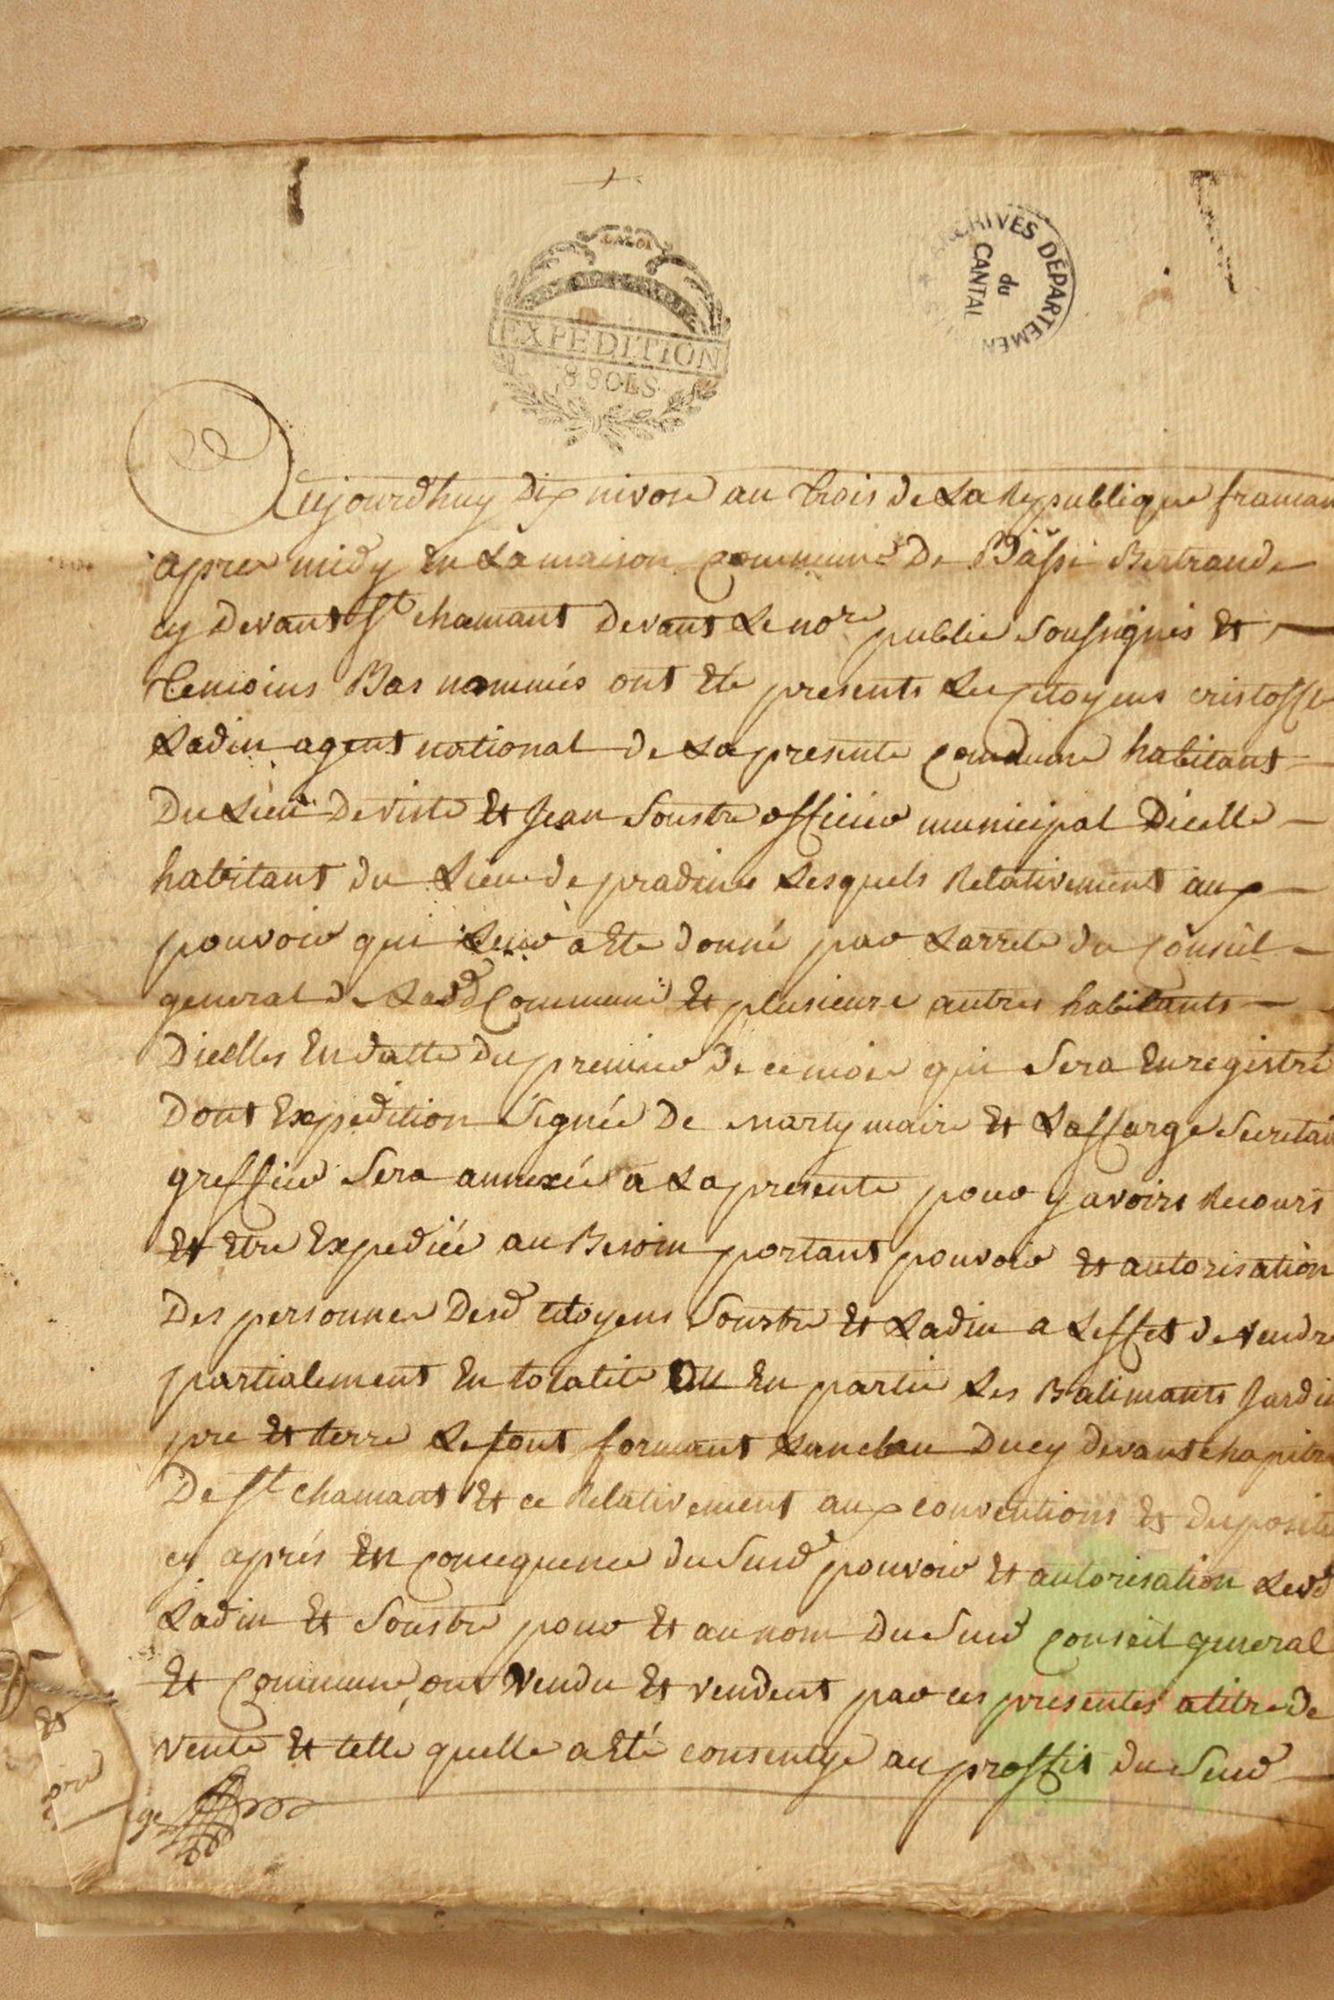 LA LOI
EXPEDITION
8 SOLS
ARCHIVES DÉPARTEMEN
du
CANTAL
Aujourdhuy dix nivose an trois de La Republique francai
apres midy en La maison Commune De Basse Bertrande
cy Devant St chamant Devant Le nore public Soussignés et
temoins Bas nommés ont été presents Les Citoyens cristofle
Ladin agent national de La presente Commune habitant
Du Lieu De viste et Jean Soustre officier municipal Dicelle
habitant du Lieu de pradines Lesquels Relativement aux
pouvoir qui Leur a Eté donné par Larrete du Conseil
general de Ladd Commune et plusieurs autres habitants
Dicelles En datte du premier de ce mois qui Sera Enregistré
Dont Expedition Signée De marty maire et Laffarge Secretai
greffier Sera annexée a La presente pour y avoirs Recours
et etre Expediée au Besoin portant pouvoir et autorisation
Des personnes Desd citoyens Soustre et Ladin a Leffet de vendre
partialement En totalité ou En partie Les Batimants Jardin
pre et terre Le font formant Lanclau Du cy devant chapitre
De St chamant et ce Relativement aux conventions et
cy aprés En Concequence du Susd pouvoir et autorisation Lesd
Ladin et Soustre pour et au nom Du Susd Conseil general
et Commune ont vendu et vendent par ces presentes a titre de
vente et telle quelle a Eté consentye au proffit du Susd